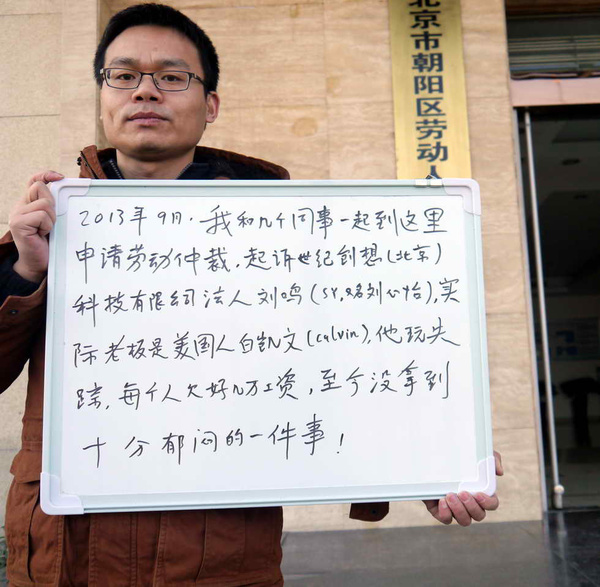 北京市朝阳区劳动人
2013年9月,我和几个同事一起到这里
申请劳动仲裁,起诉世纪创想(北京)
科技有限公司法人刘鸣(SY,又名刘心怡),实
际老板是美国人白凯文(calvin),他玩失
踪,每个人欠好几万工资,至今没拿到
十分郁闷的一件事!